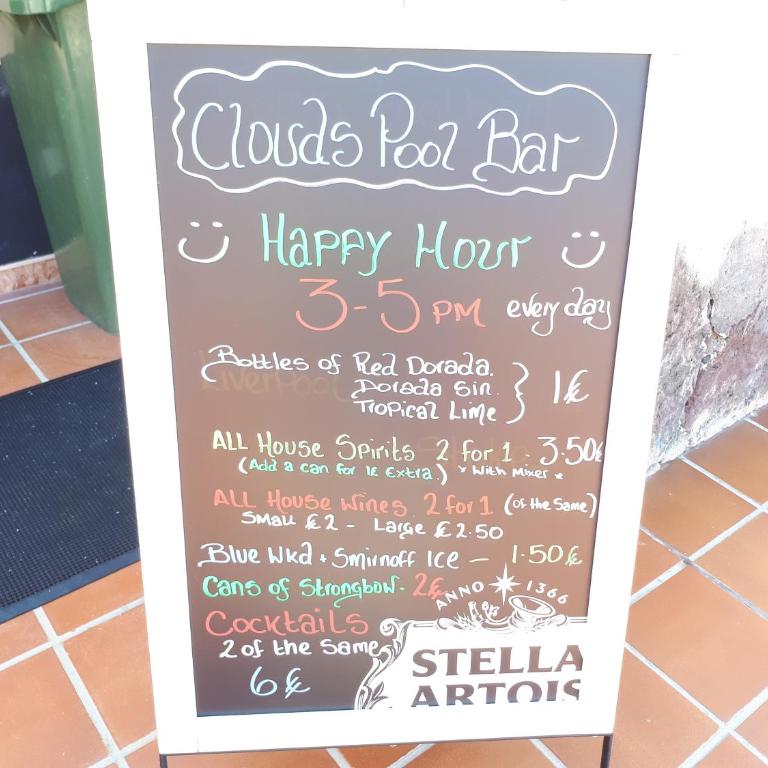 Clouds Pool Bar
Happy Hour
3-5 PM every day
Bottles of Red Dorada.
Dorada Sin
Tropical Lime
1€
ALL House Spirits 2 for 1 - 3.50€
(Add a can for 1€ Extra.) * With Mixer *
ALL House Wines 2 for 1 (of the Same)
Small €2 - Large €2.50
Blue Wkd + Smirnoff ICE - 1.50€
Cans of Strongbow - 2€
Cocktails
2 of the Same
6€
ANNO 1366
STELLA
ARTOIS